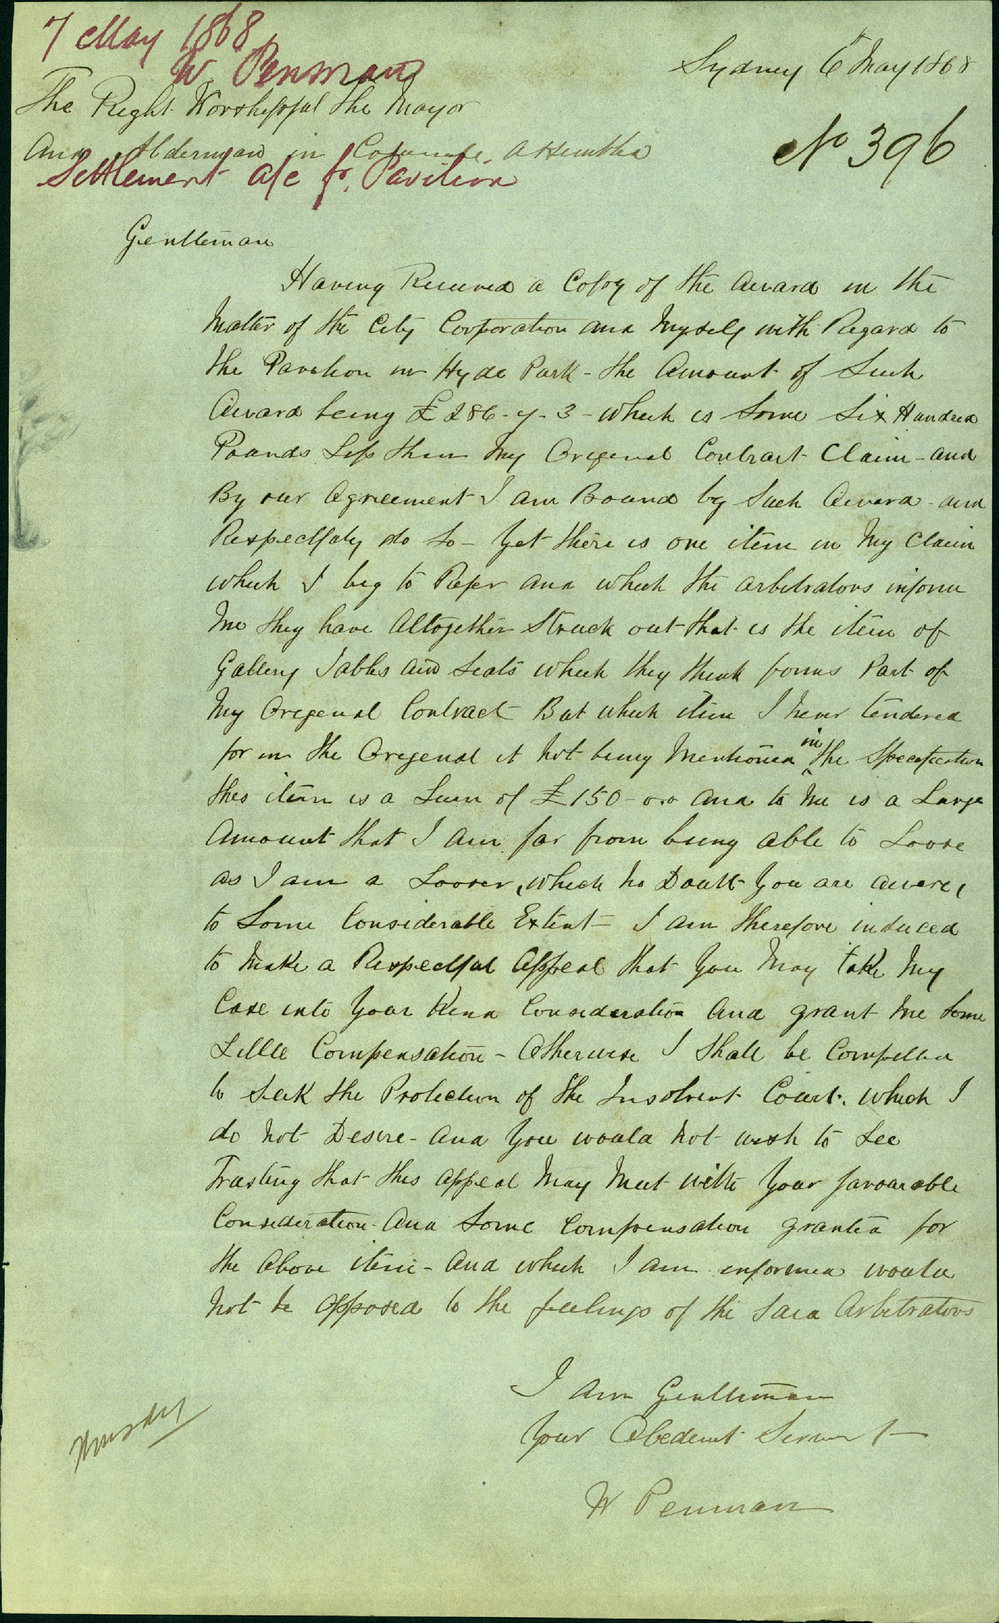 7 May 1868
W. Penman
Sydney 6 May 1868
The Right Worshipful the Mayor
No 396
And Alderman in Councile Assembled
Settlement a/c for Pavilion
Gentleman
Having Received a Copy of the Award in the
Matar of the City Corporation and Myself with Regard to
the Pavilion in Hyde Park - the Amount of Such
Award being £286-7-3 - which is Some Six Hundred
Pounds Less then My Origenal Contract Claim - and
By our Agreement I am Bound by Such Award - and
Respectfuly do So - Yet there is one item in My Claim
which I beg to Refer and which the arbitrators inform
Me they have Altogether Struck out that is the item of
Gallery Tables and Seats which they think forms Part of
My Origenal Contract But which item I Never tendered
for in the Origenal it Not being Mentioned in the Specification
this item is a Sum of £150-0-0 And to Me is a Large
Amount that I Am far from being able to Loose
as I am a Looser, which no Doubt You are aware,
to Some Considerable Extent - I am therefore induced
to Make a Respectful Appeal that You May take My
Case into Your Kind Consideration And grant Me Some
Little Compensation - Otherwise I Shall be Compelled
to Seek the Protection of the Insolvent Court. which I
do Not Desire - And You would Not wish to See
Trusting that this Appeal May Meet with Your favourable
Consideration - And Some Compensation granted for
the Above item - And which I am informed would
Not be Opposed to the feelings of the Said Arbitrators
I Am Gentleman
Your Obedient Servant
W Penman